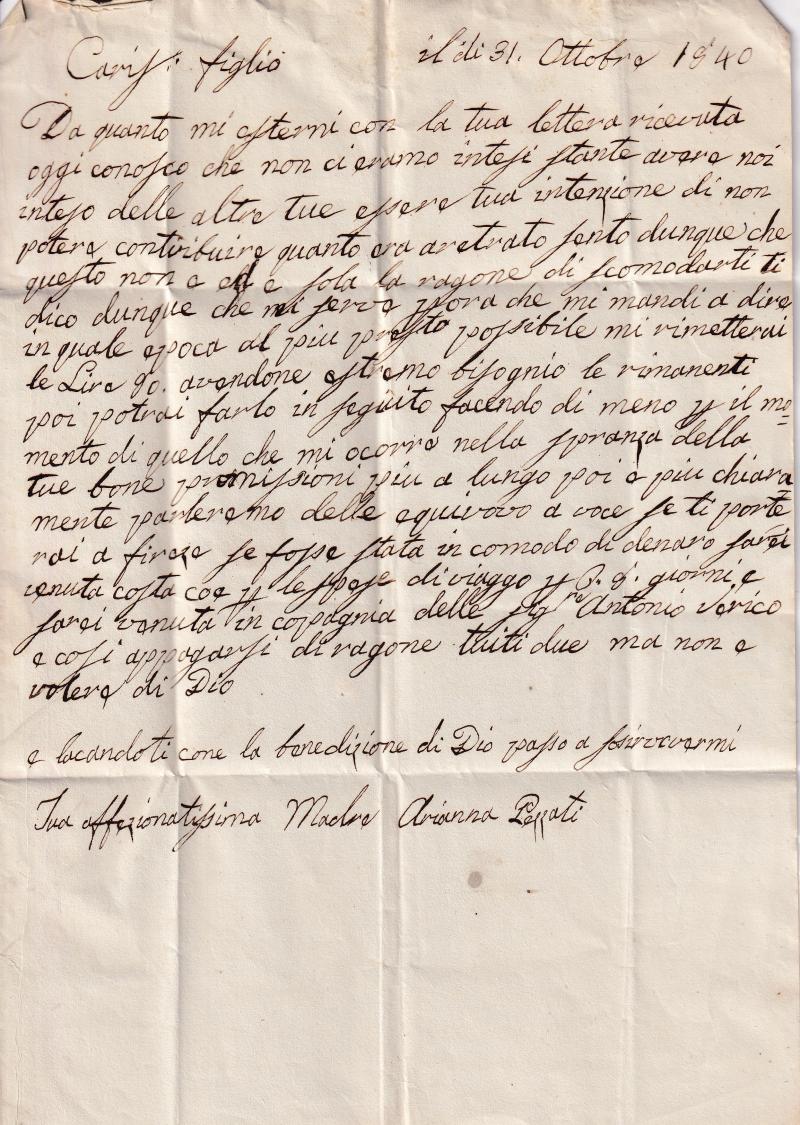 Cariss: figlio il di 31. Ottobre 1840
Da quanto mi esterni con la tua lettera ricevuta
oggi conosco che non ci eramo intesi stante avere noi
inteso delle altre tue essere tua intenzione di non
potere contribuire quanto era aretrato sento dunque che
questo non e e sola la ragone di scomodarti ti
dico dunque che mi serve p ora che mi mandi a dire
in quale epoca al piu presto possibile mi rimetterai
le Lire 90. avendone estremo bisognio le rimanenti
poi potrai farlo in seguito facendo di meno p il mo=
mento di quello che mi ocorre nella spranza della
tue bone promissioni piu a lungo poi e piu chiara
mente parleremo delle equivovo a voce se ti porte
rai a fireze se fosse stata in comodo di denaro sarei
venuta costa p le spese di viaggo p giorni e
sarei venuta in copagnia delle Sigre Antonio Serico
e cosi appagarsi di ragone tuti due ma non e
volere di Dio
e lacandoti cone la benedizione di Dio passo a
Tua affezionatissima Madre Arianna Pezzati